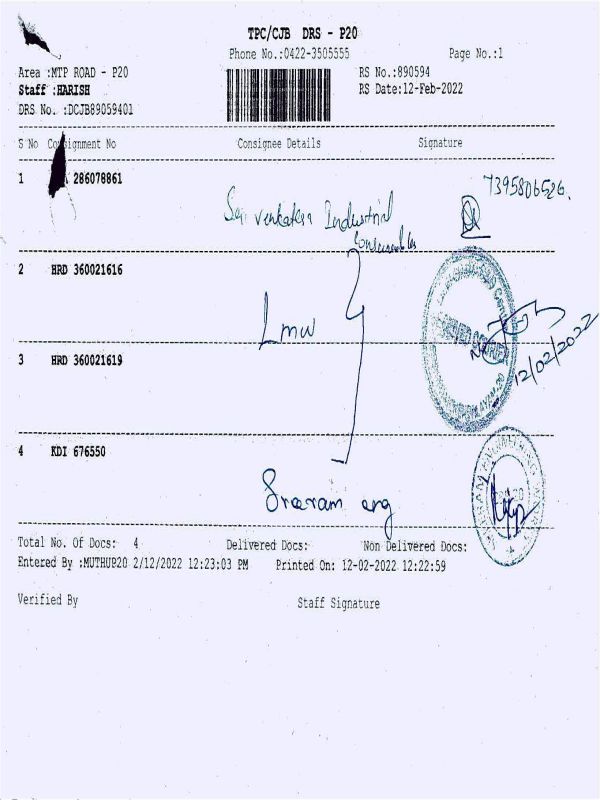 TPC/CJB DRS - P20
Phone No.:0422-3505555 Page No.:1
Area :MTP ROAD - P20 RS No.:890594
Staff :HARISH RS Date:12-Feb-2022
DRS No. :DCJB89059401
S No Consignment No Consignee Details Signature
1 286078861 7395806526.
Sri Venkatesa Industrial
Consumables
2 HRD 360021616
Lmw
12/02/2022
3 HRD 360021619
4 KDI 676550
Sreeram eng
Total No. Of Docs: 4 Delivered Docs: Non Delivered Docs:
Entered By :MUTHUP20 2/12/2022 12:23:03 PM Printed On: 12-02-2022 12:22:59
Verified By Staff Signature